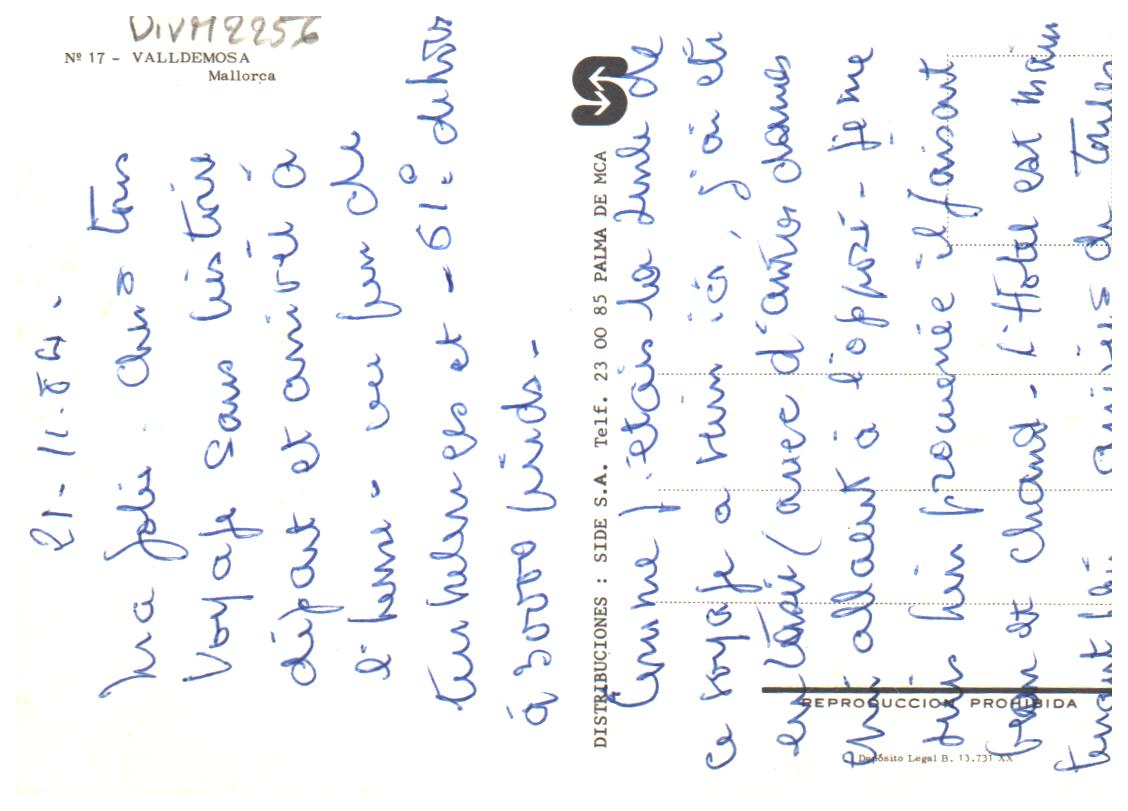 VIVM2256
Nº 17 - VALLDEMOSA
Mallorca
21-11.84.
Ma Jolie. Chers Tous
Voyage Sans histoire
départ et arrivée à
l'heure - vu peu de
turbulences et - 61° dehors
à 3000 pieds -
DISTRIBUCIONES : SIDE S.A. Telf. 23 00 85 PALMA DE MCA
Comme j'étais la seule de
ce voyage à venir ici, j'ai été
en taxi (avec d'autres dames
qui allaient à l'opposé - je me
suis bien promenée il faisant
beau et chaud - L'Hotel est main
tenant de toutes
REPRODUCCION PROHIBIDA
Depósito Legal B. 13.731 XX